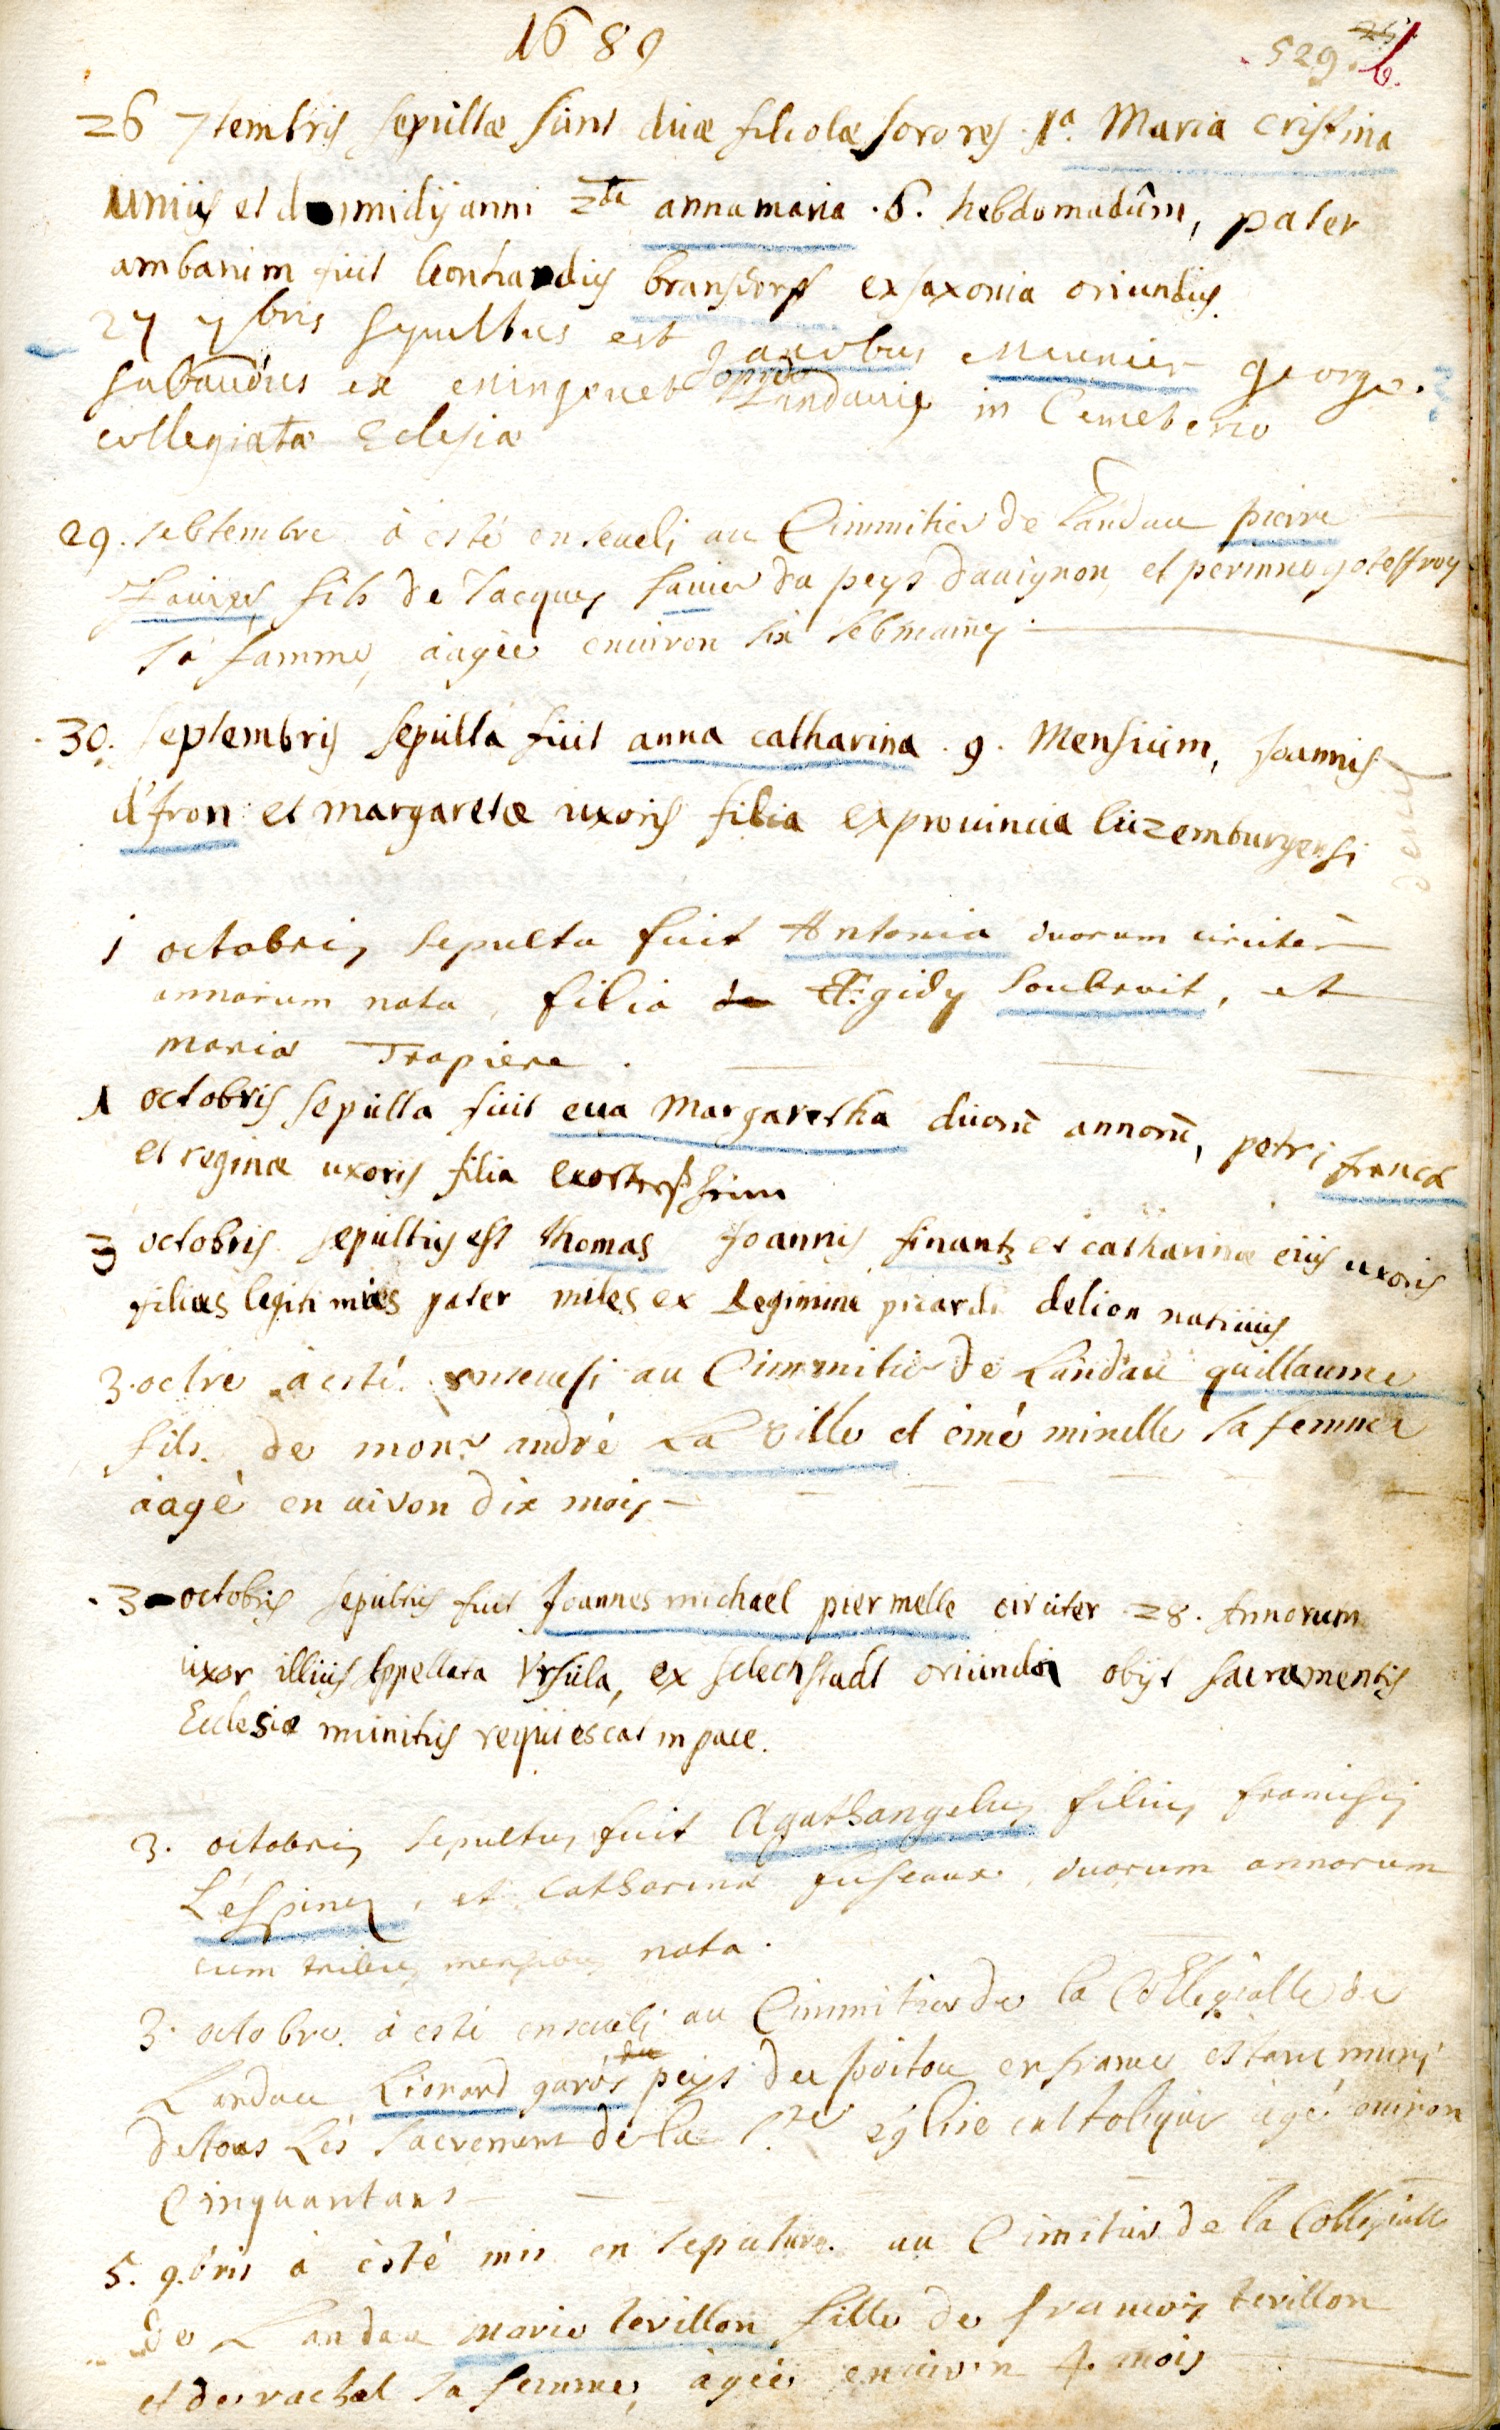 1689
529. 6.
26 7tembris sepultæ sunt duæ filiolæ sorores. 1a. Maria Cristina
unius et dimidij anni 2da anna maria .6. hebdomadûm, pater
ambarum fuit leonhardus bransdorff ex saxonia oriundus
27 7bris sepultus est Jacobus Meunier george.
sabaudus ex Landauij in Cemeterio
collegiatæ Eclesiæ
29. sebtembre à esté enseueli au Cimmitier de Landau pierre
fils de Jacques du peys dauignon, et perinne goteffroy
sa famme, àagée enuiron six sebmaines.
30. septembris sepulta fuit anna catharina .9. Mensium, Joannis
d'fron et margaretæ uxoris filia ex prouincia luzemburgensi
1 octobris sepulta fuit Antonia duorum circiter
annorum nata, filia de Ægidy Soubrait, et
maria Trapiere.
1 octobris sepulta fuit eua Margaretha duorū annorū, petri franck
et reginæ uxoris filia
3 octobris sepultus est thomas Joannis finantz et catharinæ eius uxoris
filius legitimus pater miles ex Regimine picardi delion natiuus
3. octre à esté enseueli au Cimmitier de Landau guillaume
fils de monsr andré La Ville et émé minelle sa femme
àagé enuiron dix mois
3 octobris sepultus fuit Joannes michaël piermelle circiter 28. Annorum
uxor illius Appellata Vrsula, ex selechstadt oriunda obijt sacramentis
Ecclesiæ munitus requiescat in pace.
3. octobris sepultus fuit Agathangelus filius francisci
L'éspinez, et Catharinæ fuseaux, duorum annorum
cum tribus mensibus nata.
3. octobre à esté enseueli au Cimmitier de la Collegialle de
Landau Lionard garos du peys du poitou en france estant muny
de tous Lés sacrement de la ste église catolique agé enuiron
Cinquantans
5. 9.bris à èsté mis en sepulture au Cimitier de la Collegialle
de Landau marie levillon fille de francois levillon
et de rachel sa femme, àgée enuiron 4. mois